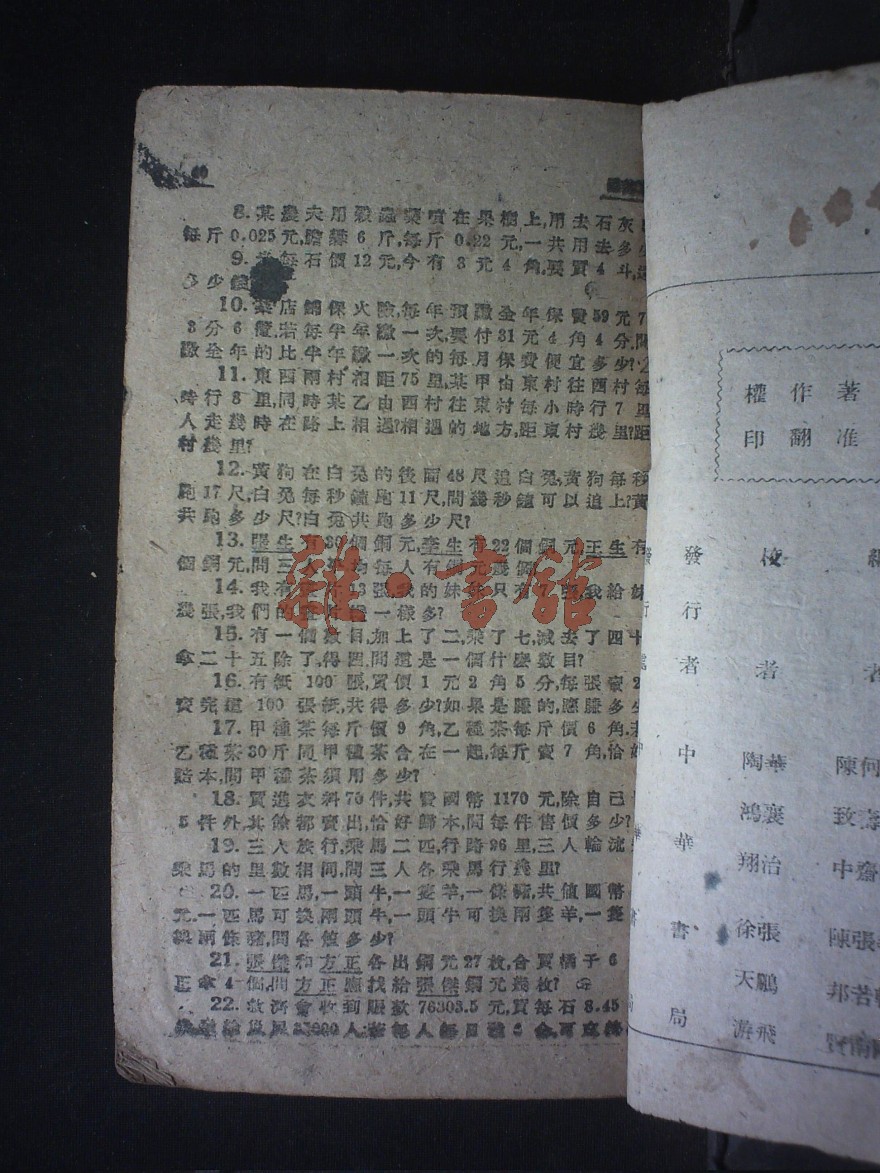 8. 某農夫用殺蟲藥噴在果樹上,用去石灰
每斤 0.025 元,膽礬 6 斤,每斤 0.22 元,一共用去多少
9. 米每石價12元,今有 3 元 4 角,要買 4 斗,還
多少錢
10. 某店鋪保火險,每年預繳全年保費59元 7
3 分 6 釐,若每半年繳一次,要付31元 4 角 4 分,問
繳全年的比半年繳一次的每月保費便宜多少?
11. 東西兩村相距75里,某甲由東村往西村每
時行 8 里,同時某乙由西村往東村每小時行 7 里
人走幾時在路上相遇?相遇的地方,距東村幾里?距
村幾里?
12. 黃狗在白兔的後面48尺追白兔,黃狗每秒
跑17尺,白兔每秒鐘跑11尺,問幾秒鐘可以追上?黃
共跑多少尺?白兔共跑多少尺?
13. 張生有30個銅元,李生有22個銅元,王生有
個銅元,問三人平均每人有銅元幾個
14. 我有 13張,我的妹妹只有 7 張,我給妹
幾張,我們的 一樣多?
15. 有一個數目,加上了二,乘了七,減去了四十
拿二十五除了,得四,問這是一個什麼數目?
16. 有紙 100 張,買價 1 元 2 角 5 分,每張賣 2
賣完這 100 張紙,共得多少?如果是賺的,應賺多少
17. 甲種茶每斤價 9 角,乙種茶每斤價 6 角,若
乙種茶30斤同甲種茶合在一起,每斤賣 7 角,恰好
賠本,問甲種茶須用多少?
18. 買進衣料70件,共費國幣 1170 元,除自己
5 件外,其餘都賣出,恰好歸本,問每件售價多少?
19. 三人旅行,乘馬二匹,行路26里,三人輪流
乘馬的里數相同,問三人各乘馬行幾里?
20. 一匹馬,一頭牛,一隻羊,一條豬,共值國幣
元,一匹馬可換兩頭牛,一頭牛可換兩隻羊,一隻
換兩條豬,問各值多少?
21. 張傑和方正各出銅元27枚,合買橘子 6
正拿 4 個,問方正應找給張傑銅元幾枚?
22. 救濟會收到賑款 76303.5 元,買每石 8.45
雜·書館
著作權
准翻印
編
者
校
者
陳何
致
中
陳張
邦若
賢南
陶華
鴻襄
翔治
徐張
天鵬
游飛
發行者
中華書局